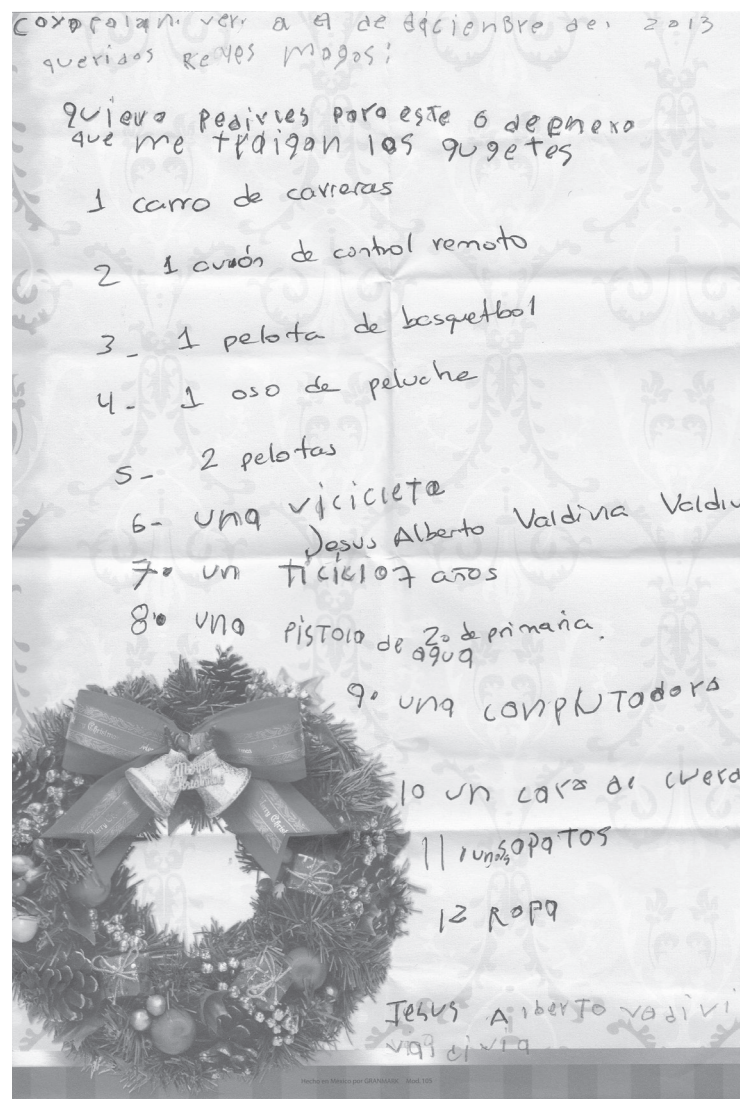 coyopolan. ver. a 4 de diciembre de. 2013
queridos Reyes Magos:
quiero Pedirles para este 6 de enero
que me traigan los gugetes
1 carro de carreras
2 1 avión de control remoto
3_ 1 pelota de basquetbol
4- 1 oso de peluche
5- 2 pelotas
6- una vicicleta
Jesus Alberto Valdivia Valdiv
7. un ticiclo 7 años
8. una PISTOla de 2o de primaria.
agua
9. una conputadora
10 un caro de cuerd
11 unos sapaTOS
12 ROPA
Jesus Alberto vadivi
valdivia
Merry Christmas
Hecho en México por GRANMARK Mod. 105